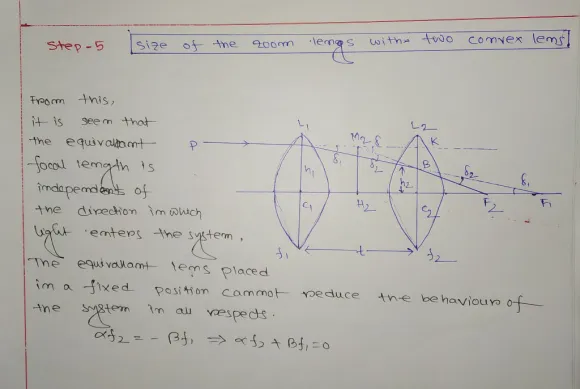 Step-5 size of the zoom lens with two convex lens
From this,
it is seen that
the equivalant
focal length is
independent of
the direction in which
light enters the system.
The equivalant lens placed
in a fixed position cannot reduce the behaviour of
the system in all respects.
αf2 = - βf1 ⇒ αf2 + βf1 = 0
L1 L2
P M2 δ K
δ1 δ2 B δ2 δ1
h1 h2
C1 H2 C2 F2 F1
f1 t f2